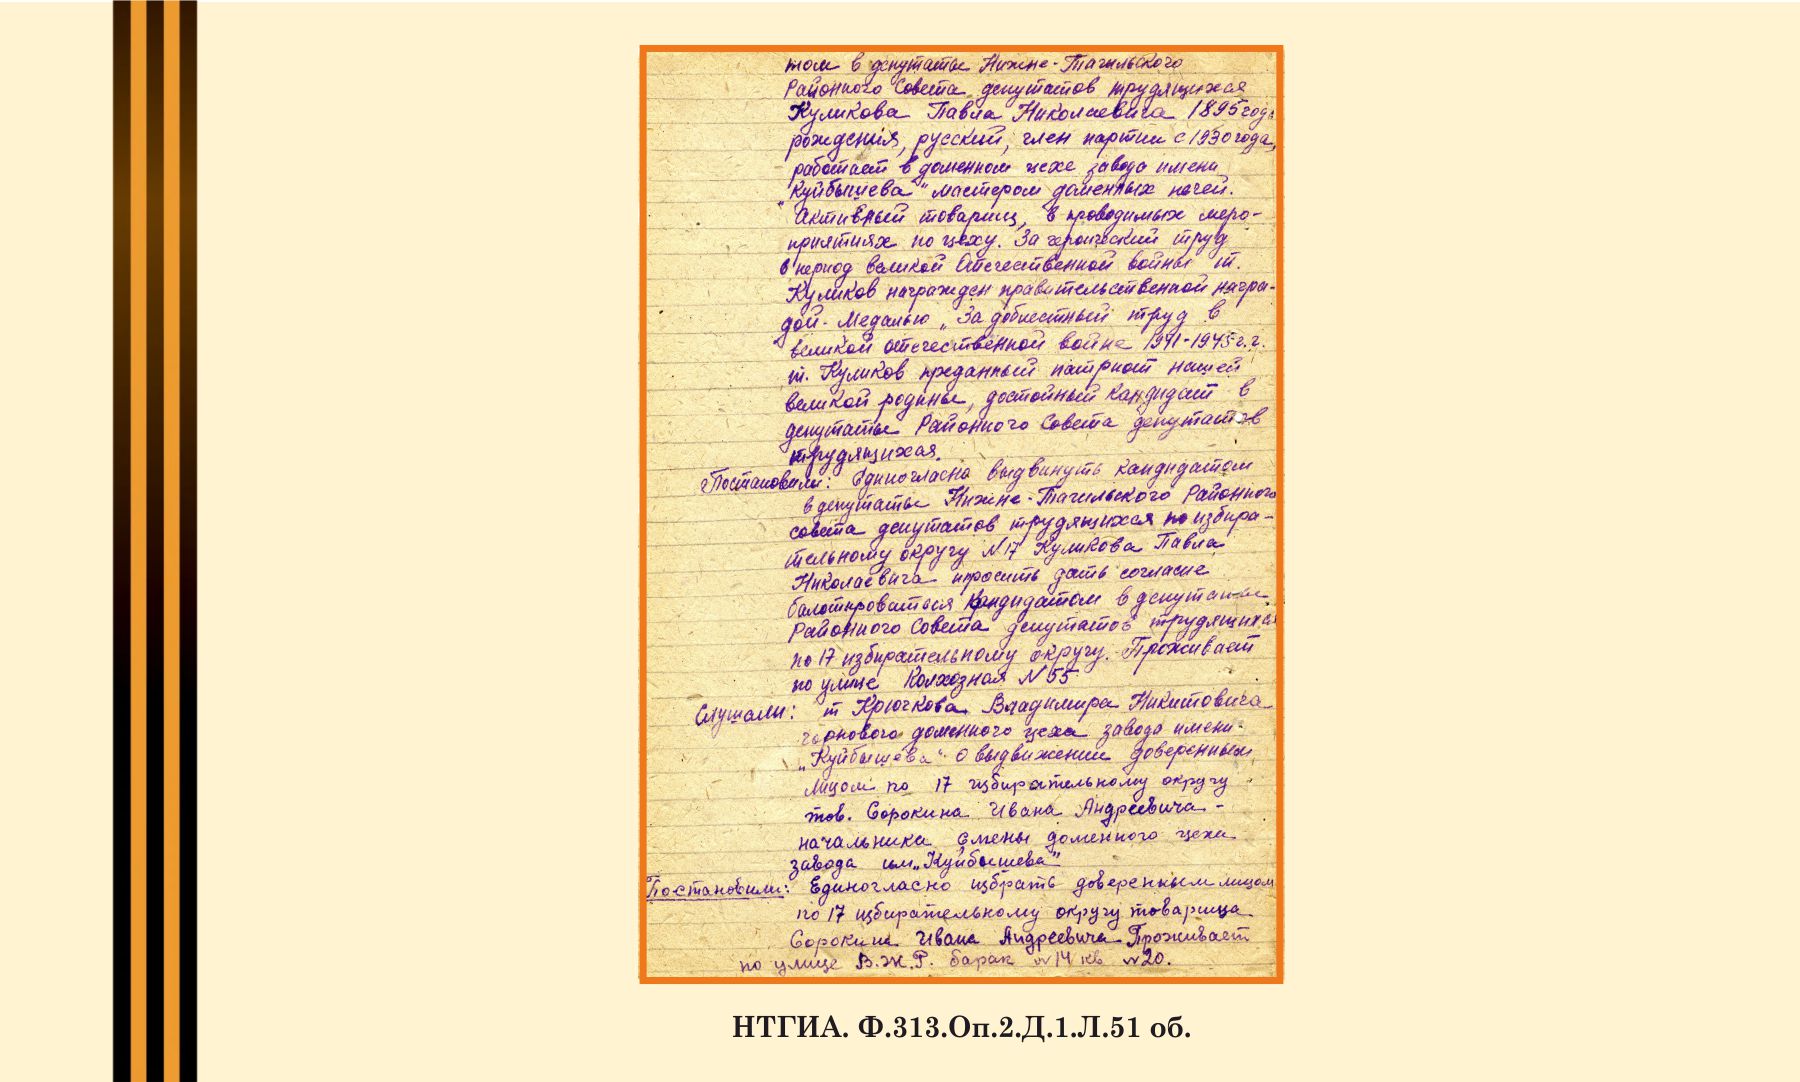 том в депутаты Нижне-Тагильского
Районного Совета депутатов трудящихся
Куликова Павла Николаевича 1895 года
рождения, русский, член партии с 1930 года,
работает в доменном цехе завода имени
"Куйбышева" мастером доменных печей.
Активный товарищ, в проводимых меро-
приятиях по цеху. За героический труд
в период великой Отечественной войны т.
Куликов награжден правительственной награ-
дой - Медалью „За доблестный труд в
великой отечественной войне 1941-1945 г.г.
т. Куликов преданный патриот нашей
великой родины, достойный кандидат в
депутаты Районного Совета депутатов
трудящихся.
Постановили: Единогласно выдвинуть кандидатом
в депутаты Нижне-Тагильского Районного
совета депутатов трудящихся по избира-
тельному округу №17 Куликова Павла
Николаевича просить дать согласие
балотироваться кандидатом в депутаты
Районного Совета депутатов трудящихся
по 17 избирательному округу. Проживает
по улице Колхозная №55
Слушали: т Крючкова Владимира Никитовича
горнового доменного цеха завода имени
„Куйбышева" о выдвижении доверенным
лицом по 17 избирательному округу
тов. Сорокина Ивана Андреевича -
начальника смены доменного цеха
завода им „Куйбышева"
Постановили: Единогласно избрать доверенным лицом
по 17 избирательному округу товарища
Сорокина Ивана Андреевича Проживает
по улице В.Ж.Р. барак №14 кв №20.
НТГИА. Ф.313.Оп.2.Д.1.Л.51 об.